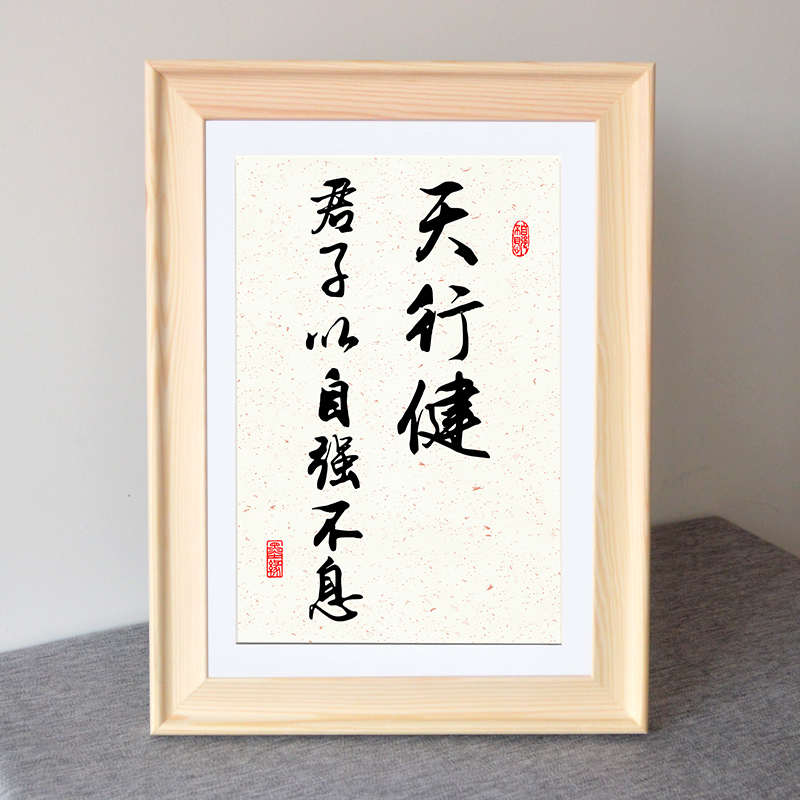 天行健
君子以自强不息